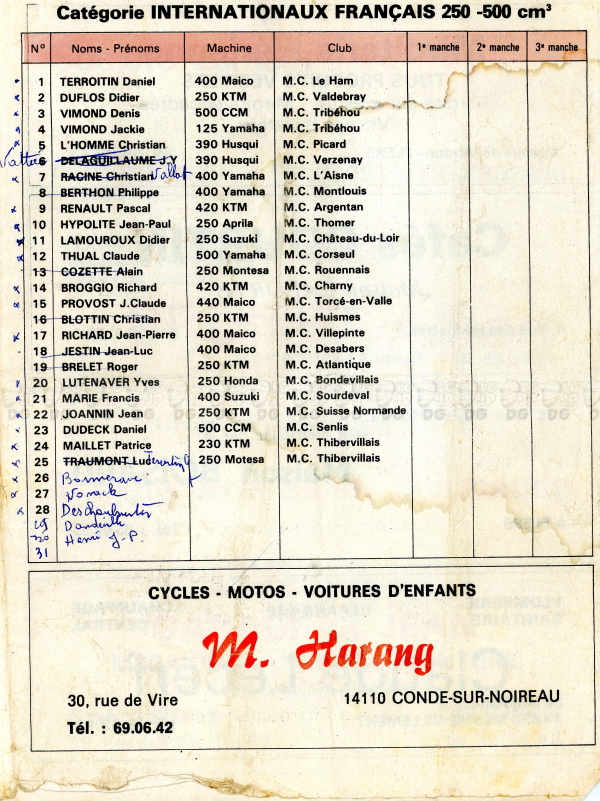 Catégorie INTERNATIONAUX FRANÇAIS 250 -500 cm³
N° Noms - Prénoms Machine Club 1e manche 2e manche 3e manche
1 TERROITIN Daniel 400 Maico M.C. Le Ham
2 DUFLOS Didier 250 KTM M.C. Valdebray
3 VIMOND Denis 500 CCM M.C. Tribéhou
4 VIMOND Jackie 125 Yamaha M.C. Tribéhou
5 L'HOMME Christian 390 Husqui M.C. Picard
6 DELAGUILLAUME J.Y 390 Husqui M.C. Verzenay
7 RACINE Christian Vallat 400 Yamaha M.C. L'Aisne
8 BERTHON Philippe 400 Yamaha M.C. Montlouis
9 RENAULT Pascal 420 KTM M.C. Argentan
10 HYPOLITE Jean-Paul 250 Aprila M.C. Thomer
11 LAMOUROUX Didier 250 Suzuki M.C. Château-du-Loir
12 THUAL Claude 500 Yamaha M.C. Corseul
13 COZETTE Alain 250 Montesa M.C. Rouennais
14 BROGGIO Richard 420 KTM M.C. Charny
15 PROVOST J.Claude 440 Maico M.C. Torcé-en-Valle
16 BLOTTIN Christian 250 KTM M.C. Huismes
17 RICHARD Jean-Pierre 400 Maico M.C. Villepinte
18 JESTIN Jean-Luc 400 Maico M.C. Desabers
19 BRELET Roger 250 KTM M.C. Atlantique
20 LUTENAVER Yves 250 Honda M.C. Bondevillais
21 MARIE Francis 400 Suzuki M.C. Sourdeval
22 JOANNIN Jean 250 KTM M.C. Suisse Normande
23 DUDECK Daniel 500 CCM M.C. Senlis
24 MAILLET Patrice 230 KTM M.C. Thibervillais
25 TRAUMONT Luc 250 Motesa M.C. Thibervillais
26
27
28
29
30 Hervé J-P.
31
CYCLES - MOTOS - VOITURES D'ENFANTS
M. Harang
30, rue de Vire 14110 CONDE-SUR-NOIREAU
Tél. : 69.06.42